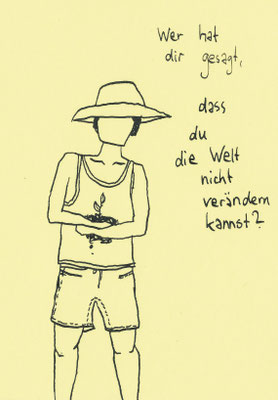 Wer hat
dir gesagt,
dass
du
die Welt
nicht
verändern
kannst?